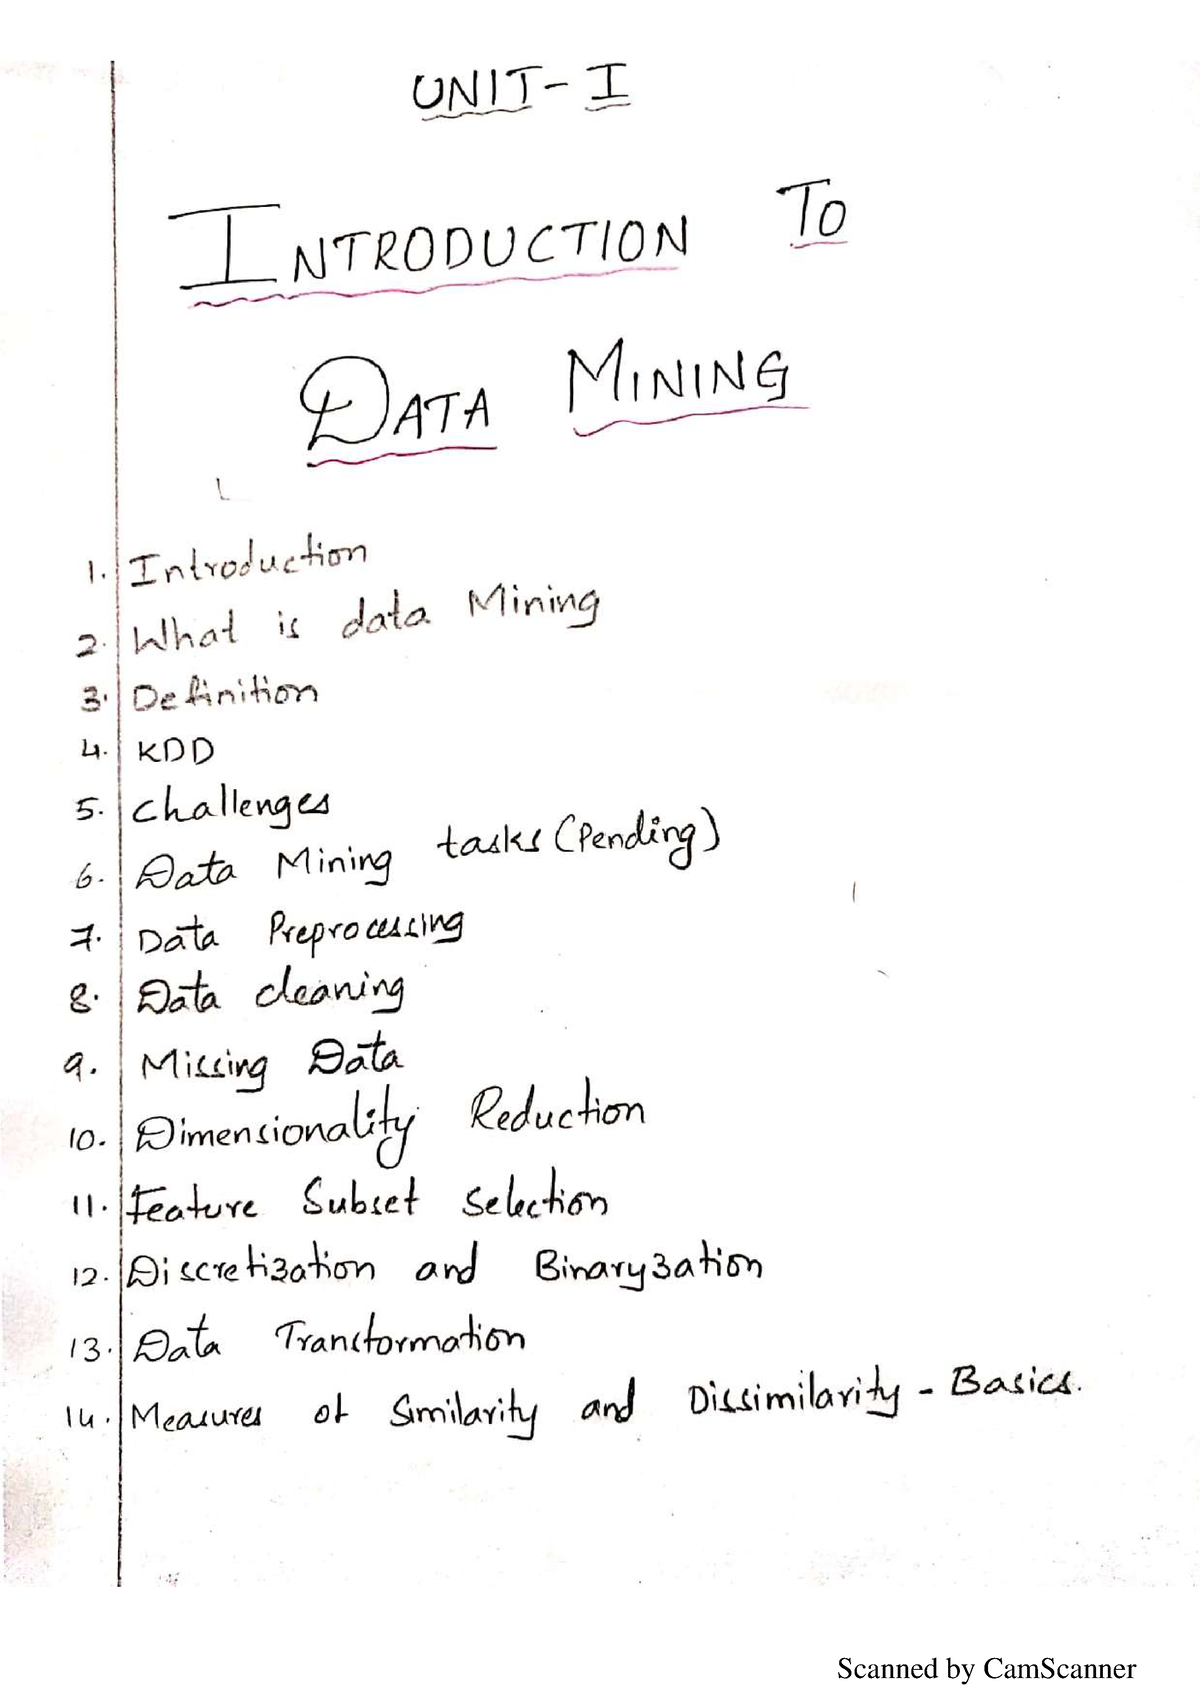 UNIT-I
INTRODUCTION TO
DATA MINING
1. Introduction
2. What is data Mining
3. Definition
4. KDD
5. challenges
6. Data Mining tasks (Pending)
7. Data Preprocessing
8. Data cleaning
9. Missing Data
10. Dimensionality Reduction
11. Feature Subset Selection
12. Discretization and Binaryzation
13. Data Transformation
14. Measures of Similarity and Dissimilarity - Basics.
Scanned by CamScanner